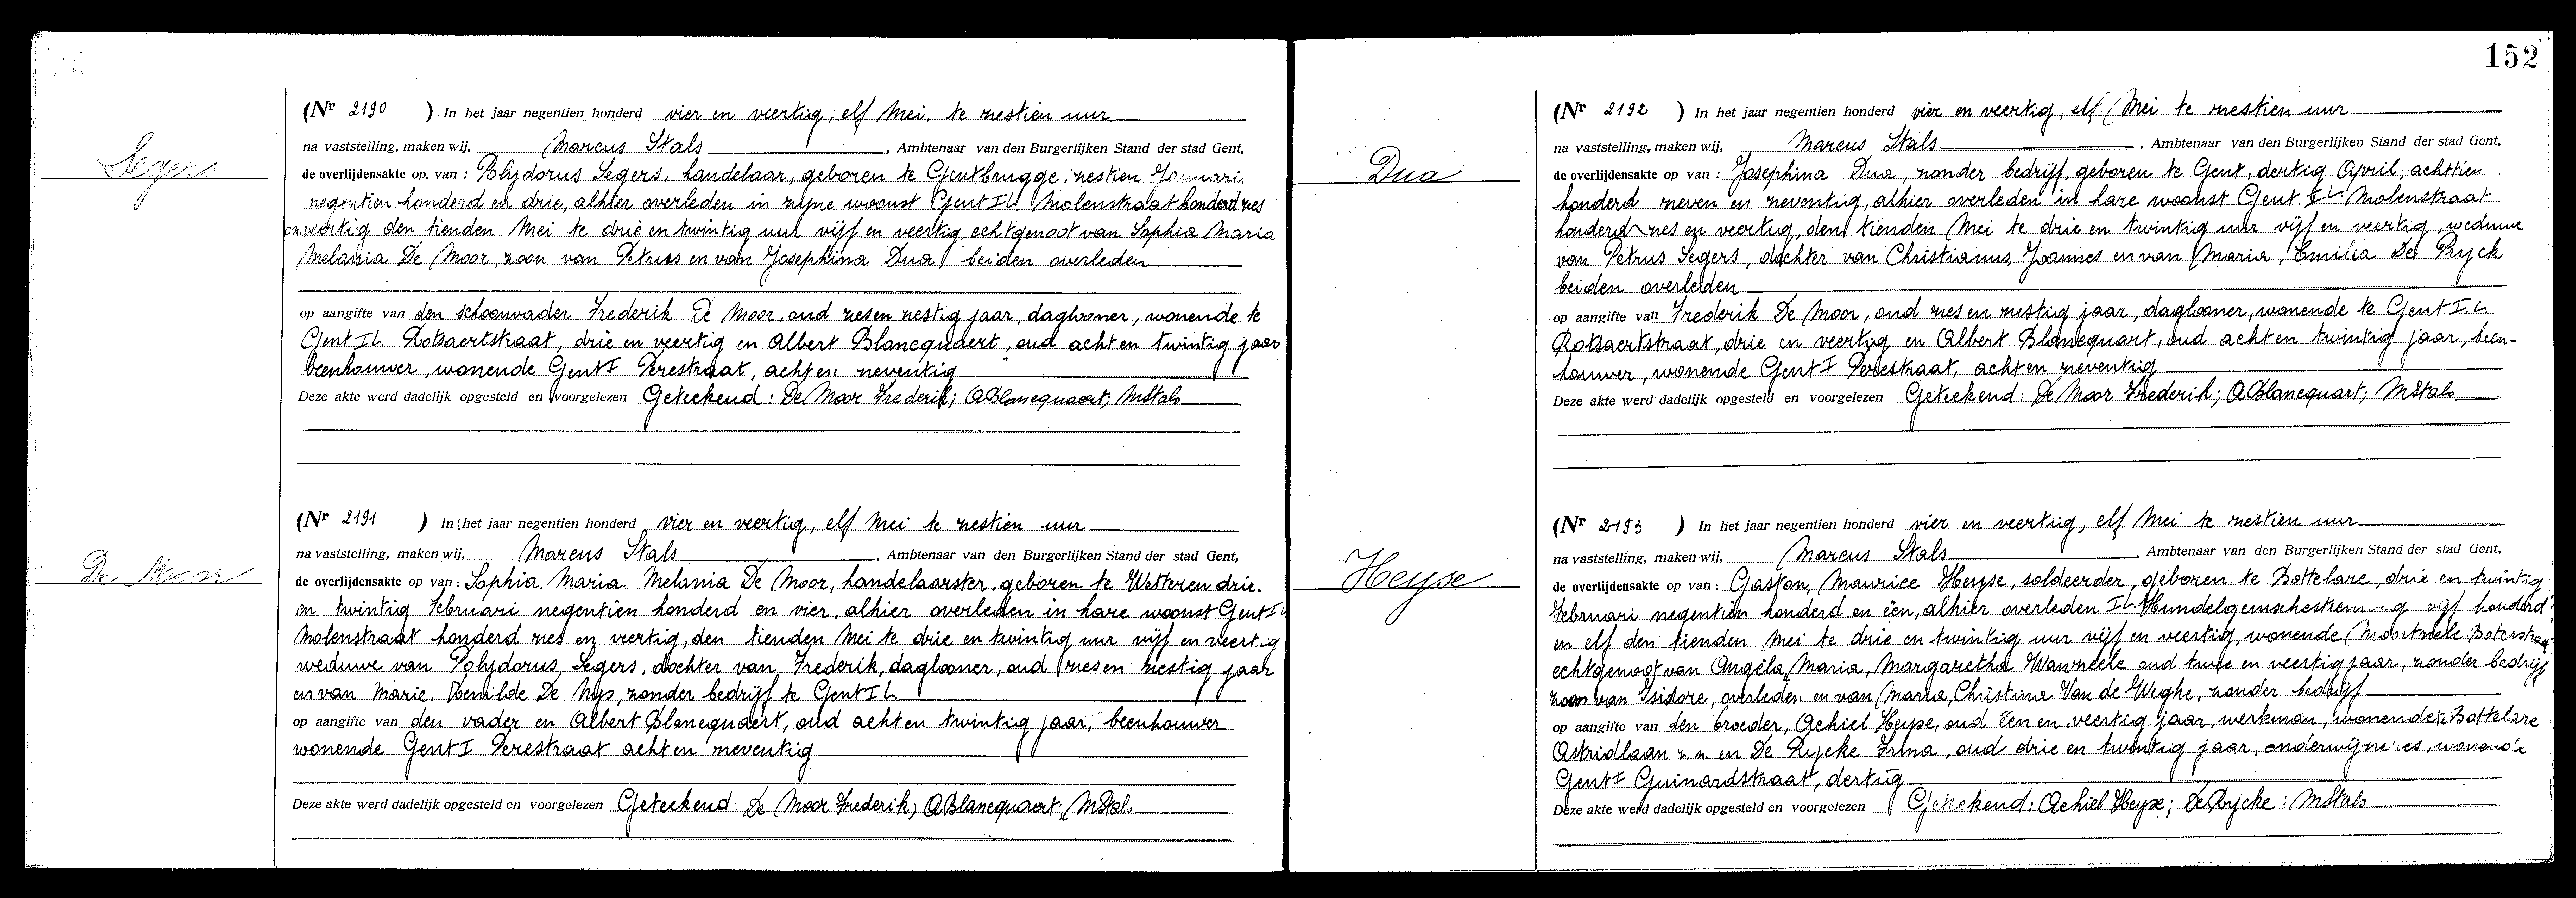 152
Segers
(Nr 2190 ) In het jaar negentien honderd vier en veertig, elf Mei, te zestien uur
na vaststelling, maken wij, Marcus Stals, Ambtenaar van den Burgerlijken Stand der stad Gent,
de overlijdensakte op van : Polydorus Segers, handelaar, geboren te Gentbrugge, zestien Januari
negentien honderd en drie, alhier overleden in zijne woonst Gent IL. Molenstraat honderd zes
en veertig den tienden Mei te drie en twintig uur vijf en veertig, echtgenoot van Sophia Maria
Melania De Moor, zoon van Petrus en van Josephina Dua beiden overleden
op aangifte van den schoonvader Frederik De Moor, oud zes en zestig jaar, daglooner, wonende te
Gent IL Rotsaertstraat, drie en veertig en Albert Blancquaert, oud acht en twintig jaar
beenhouwer, wonende Gent I Perestraat, acht en zeventig
Deze akte werd dadelijk opgesteld en voorgelezen Geteekend : De Moor Frederik; ABlancquaert; MStals
De Moor
(Nr 2191 ) In het jaar negentien honderd vier en veertig, elf Mei te zestien uur
na vaststelling, maken wij, Marcus Stals, Ambtenaar van den Burgerlijken Stand der stad Gent,
de overlijdensakte op van : Sophia Maria Melania De Moor, handelaarster, geboren te Wetteren drie
en twintig Februari negentien honderd en vier, alhier overleden in hare woonst Gent IL
Molenstraat honderd zes en veertig, den tienden Mei te drie en twintig uur vijf en veertig
weduwe van Polydorus Segers, dochter van Frederik, daglooner, oud zes en zestig jaar
en van Marie De Nijs, zonder bedrijf te Gent IL
op aangifte van den vader en Albert Blancquaert, oud acht en twintig jaar, beenhouwer
wonende Gent I Perestraat acht en zeventig
Deze akte werd dadelijk opgesteld en voorgelezen Geteekend: De Moor Frederik; ABlancquaert; MStals
Dua
(Nr 2192 ) In het jaar negentien honderd vier en veertig, elf Mei te zestien uur
na vaststelling, maken wij, Marcus Stals, Ambtenaar van den Burgerlijken Stand der stad Gent,
de overlijdensakte op van : Josephina Dua, zonder bedrijf, geboren te Gent, dertig April, achttien
honderd zeven en zeventig, alhier overleden in hare woonst Gent IL. Molenstraat
honderd zes en veertig, den tienden Mei te drie en twintig uur vijf en veertig, weduwe
van Petrus Segers, dochter van Christianus, Joannes en van Maria, Emilia De Ryck
beiden overleden
op aangifte van Frederik De Moor, oud zes en zestig jaar, daglooner, wonende te Gent IL
Rotsaertstraat, drie en veertig en Albert Blancquart, oud acht en twintig jaar, been-
houwer, wonende Gent I Perestraat, acht en zeventig
Deze akte werd dadelijk opgesteld en voorgelezen Geteekend: De Moor Frederik; ABlancquart; MStals
Heyse
(Nr 2193 ) In het jaar negentien honderd vier en veertig, elf Mei te zestien uur
na vaststelling, maken wij, Marcus Stals, Ambtenaar van den Burgerlijken Stand der stad Gent,
de overlijdensakte op van : Gaston, Maurice Heyse, soldeerder, geboren te Bottelare, drie en twintig
Februari negentien honderd en één, alhier overleden IL Hundelgemschesteenweg vijf honderd
en elf den tienden Mei te drie en twintig uur vijf en veertig, wonende Moortzele Boterstraat
echtgenoot van Angèla, Maria, Margaretha Wanzeele oud twee en veertig jaar, zonder bedrijf
zoon van Isidore, overleden en van Maria, Christina Van de Weghe, zonder bedrijf
op aangifte van den broeder, Achiel Heyse, oud één en veertig jaar, werkman, wonende te Bottelare
Astridlaan z.n. en De Rycke Irma, oud drie en twintig jaar, onderwijzeres, wonende
Gent I Guinardstraat, dertig
Deze akte werd dadelijk opgesteld en voorgelezen Geteekend: Achiel Heyse; DeRycke; MStals